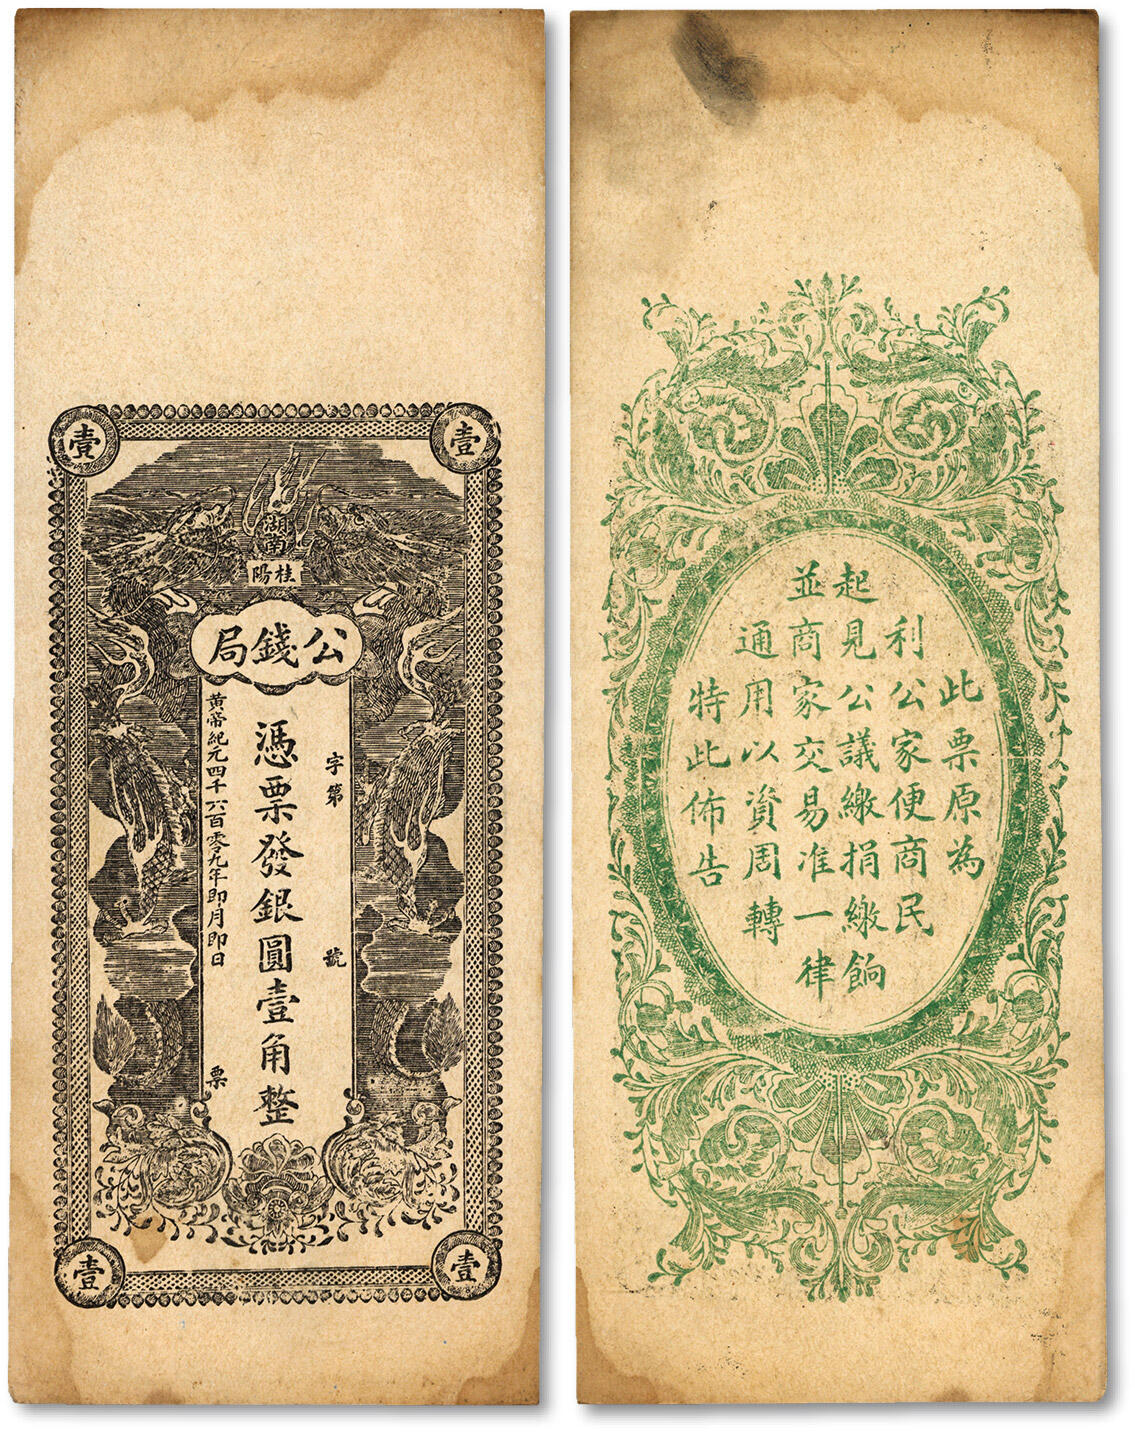 壹
壹
湖南
桂陽
公錢局
字第 號
憑票發銀圓壹角整
黃帝紀元四千六百零九年即月即日 票
壹
壹
此票原為
利公家便商民
起見公議繳捐繳餉
並商家交易准一律
通用以資周轉
特此佈告